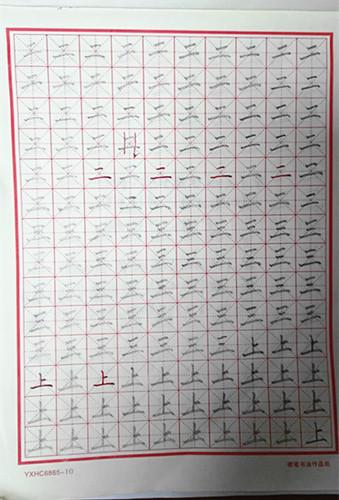 二二二二二二二二二二
二二二二二二二二二二
二二二二二二二二二二
二二二二二二二二二
二二二二二二二二二二
二二二二二二二二二二
三三三三三三三三三三
三三三三三三三三三三
三三三三三三三三三三
三三三三三三三三三三
上上上
上上上上上上上上上上
上上上上上上上上上上
上上上上上上上上上上
YXHC6865-10